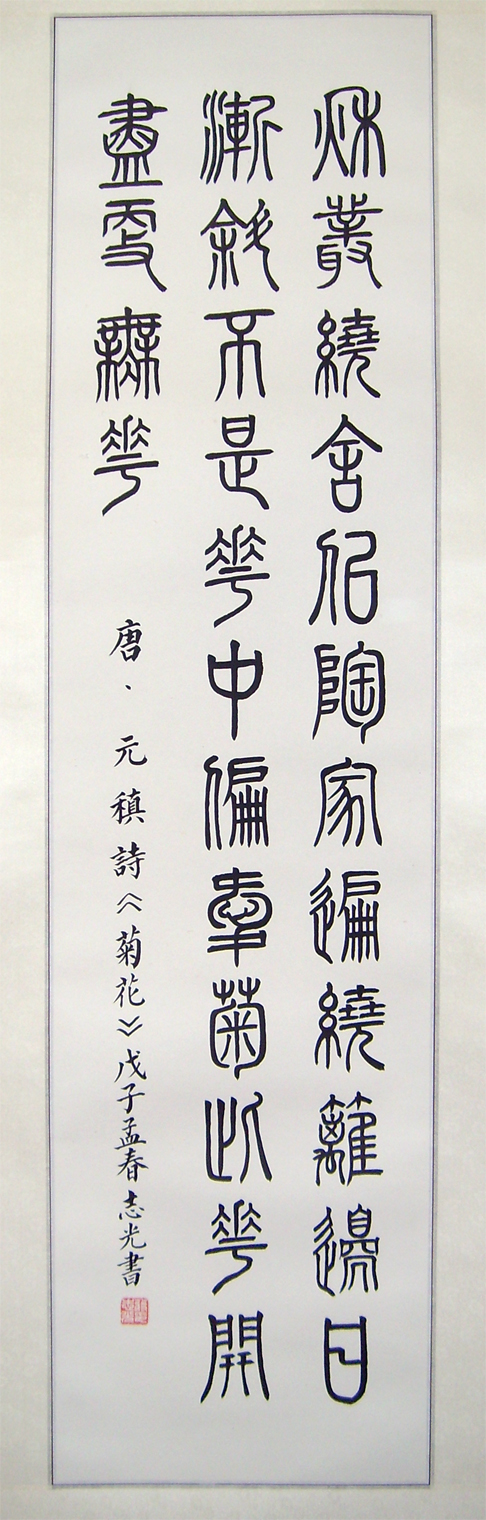 秋叢繞舍似陶家遍繞籬邊日
漸斜不是花中偏愛菊此花開
盡更無花
唐、元稹詩《菊花》戊子孟春志光書